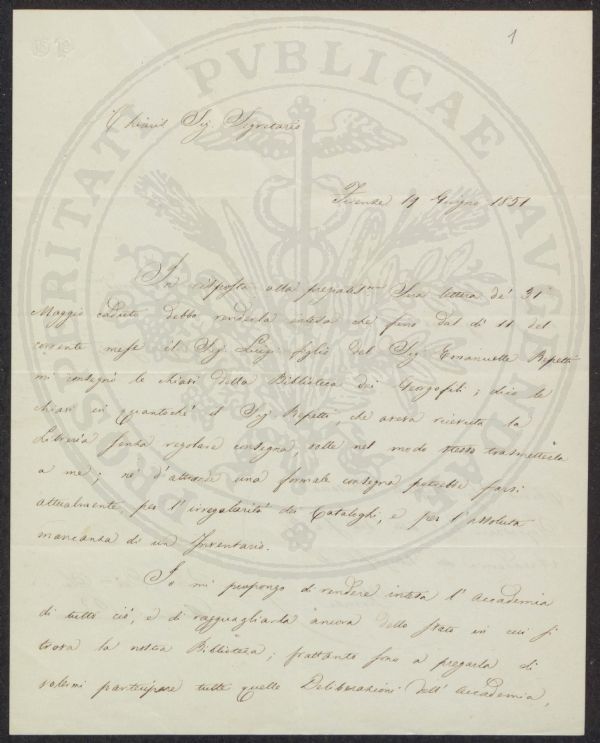 1
PROSPERITATI PVBLICAE AVGENDAE
Chiaris Sig. Segretario
Firenze 19 Giugno 1851
In risposta alla pregiatis.ma Sua lettera de' 31
Maggio caduto debbo renderla intesa che fino dal dì 11 del
corrente mese il Sig. Luigi figlio del Sig. Emanuelle Repetti
mi consegnò le chiavi della Biblioteca dei Georgofili; dico le
chiavi in quantochè il Sig. Repetti, che aveva ricevuta la
Libreria senza regolare consegna, volle nel modo stesso trasmetterla
a me; nè d'altronde una formale consegna potrebbe farsi
attualmente, per l'irregolarità dei Cataloghi, e per l'assoluta
mancanza di un Inventario.
Io mi propongo di rendere intesa l'Accademia
di tutto ciò, e di ragguagliarla ancora dello stato in cui si
trova la nostra Biblioteca; frattanto sono a pregarla di
volermi partecipare tutte quelle Deliberazioni dell'Accademia,